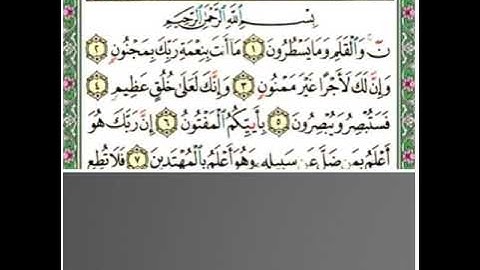 بِسْمِ ٱللَّهِ ٱلرَّحْمَٰنِ ٱلرَّحِيمِ
نٓ ۚ وَٱلْقَلَمِ وَمَا يَسْطُرُونَ ١ مَآ أَنتَ بِنِعْمَةِ رَبِّكَ بِمَجْنُونٍ ٢
وَإِنَّ لَكَ لَأَجْرًا غَيْرَ مَمْنُونٍ ٣ وَإِنَّكَ لَعَلَىٰ خُلُقٍ عَظِيمٍ ٤
فَسَتُبْصِرُ وَيُبْصِرُونَ ٥ بِأَييِّكُمُ ٱلْمَفْتُونُ ٦ إِنَّ رَبَّكَ هُوَ
أَعْلَمُ بِمَن ضَلَّ عَن سَبِيلِهِۦ وَهُوَ أَعْلَمُ بِٱلْمُهْتَدِينَ ٧ فَلَا تُطِعِ